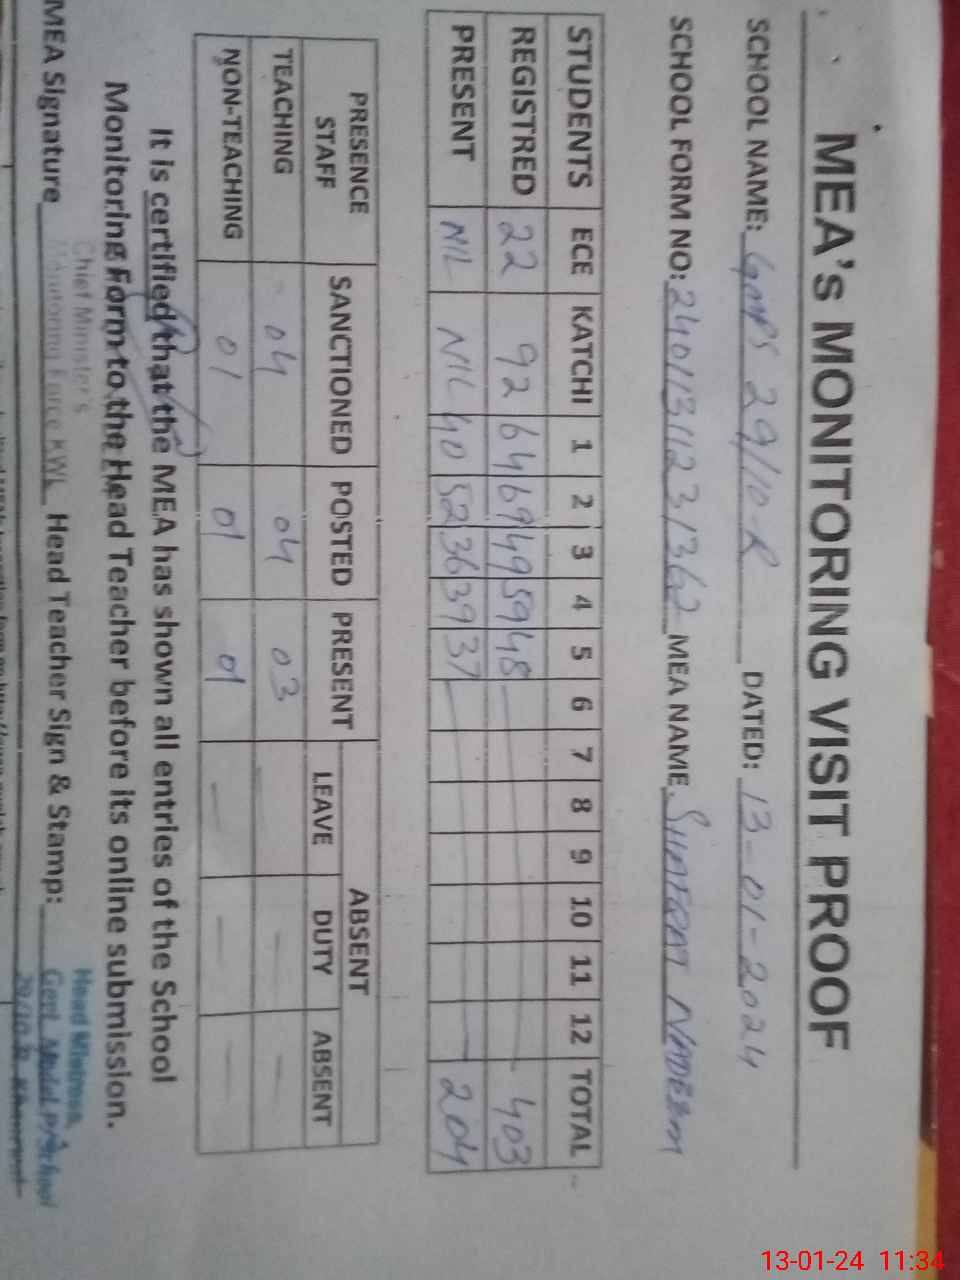 MEA's MONITORING VISIT PROOF
SCHOOL NAME: GMPS 29/10-R DATED: 13-01-2024
SCHOOL FORM NO: MEA NAME NADEEM
STUDENTS ECE KATCHI 1 2 3 4 5 6 7 8 9 10 11 12 TOTAL
REGISTRED 22 92 64 69 49 59 48 403
PRESENT NIL NIL 40 52 36 39 37 204
PRESENCE STAFF SANCTIONED POSTED PRESENT ABSENT
LEAVE DUTY ABSENT
TEACHING 04 04 03 — — —
NON-TEACHING 01 01 01 — — —
It is certified that the MEA has shown all entries of the School
Monitoring Form to the Head Teacher before its online submission.
Chief Minister's
Monitoring Force KWL
MEA Signature Head Teacher Sign & Stamp:
Head Mistress
Govt. Model P/School
29/10-R
13-01-24 11:34